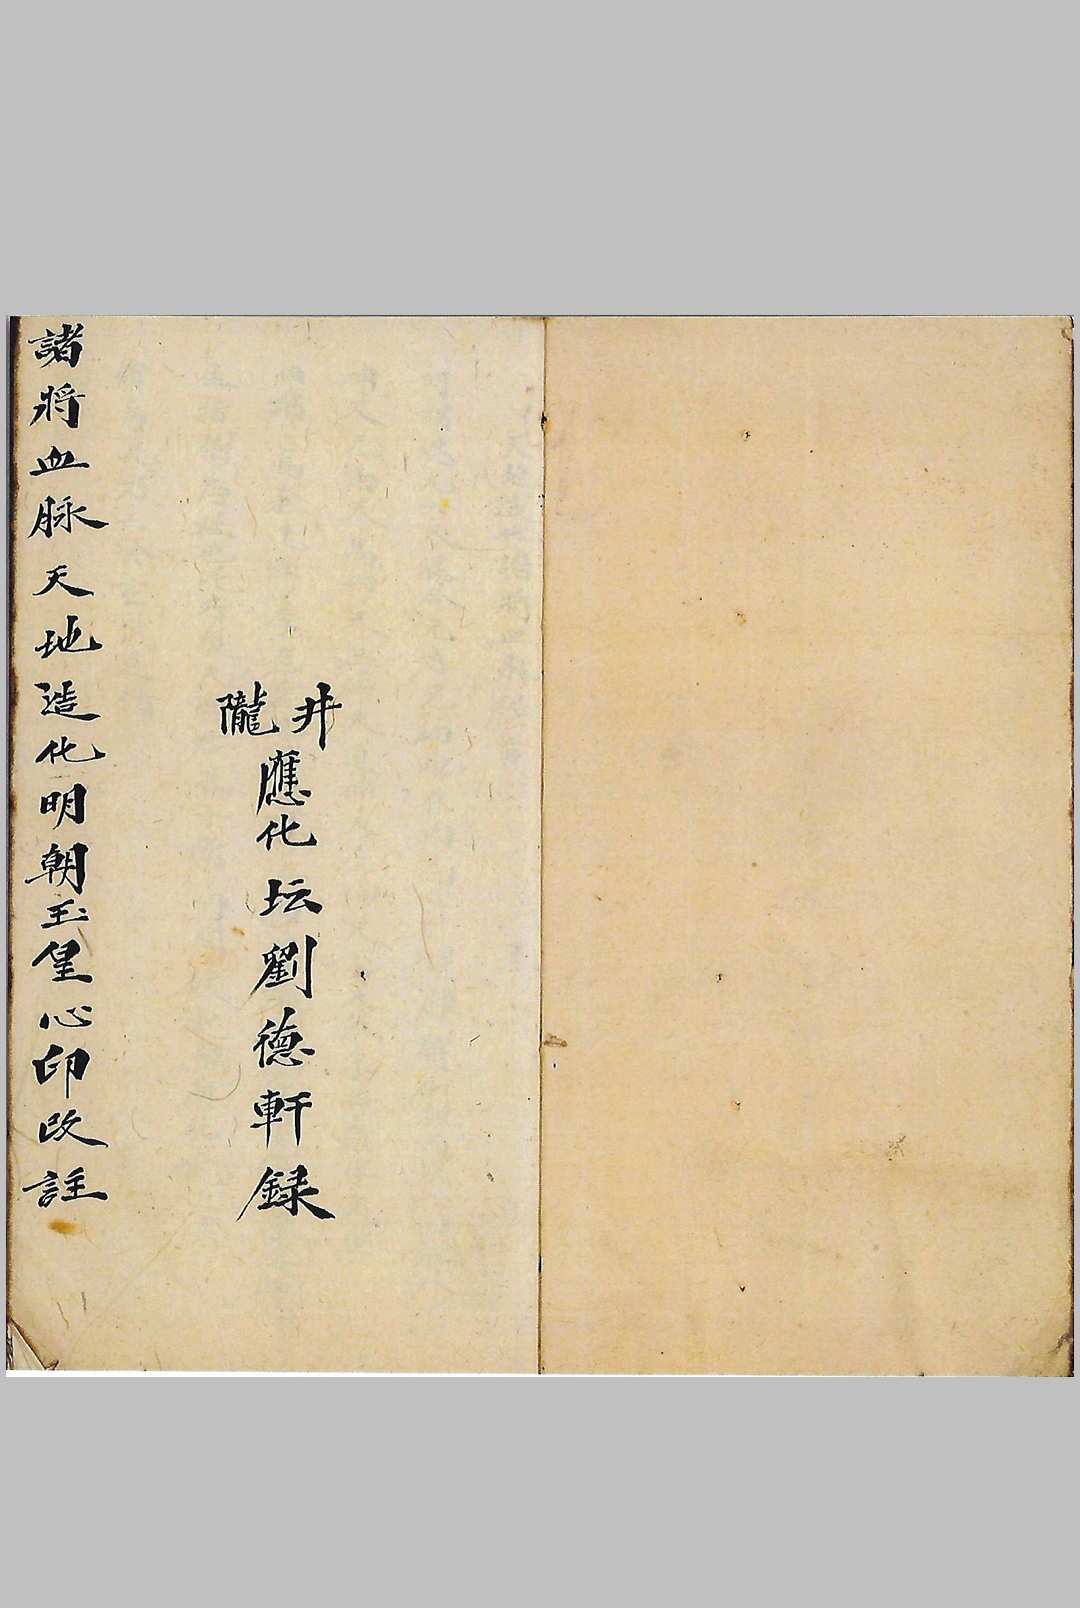 井隴應化坛劉德軒録
諸將血脉天地造化明朝玉皇心印改註